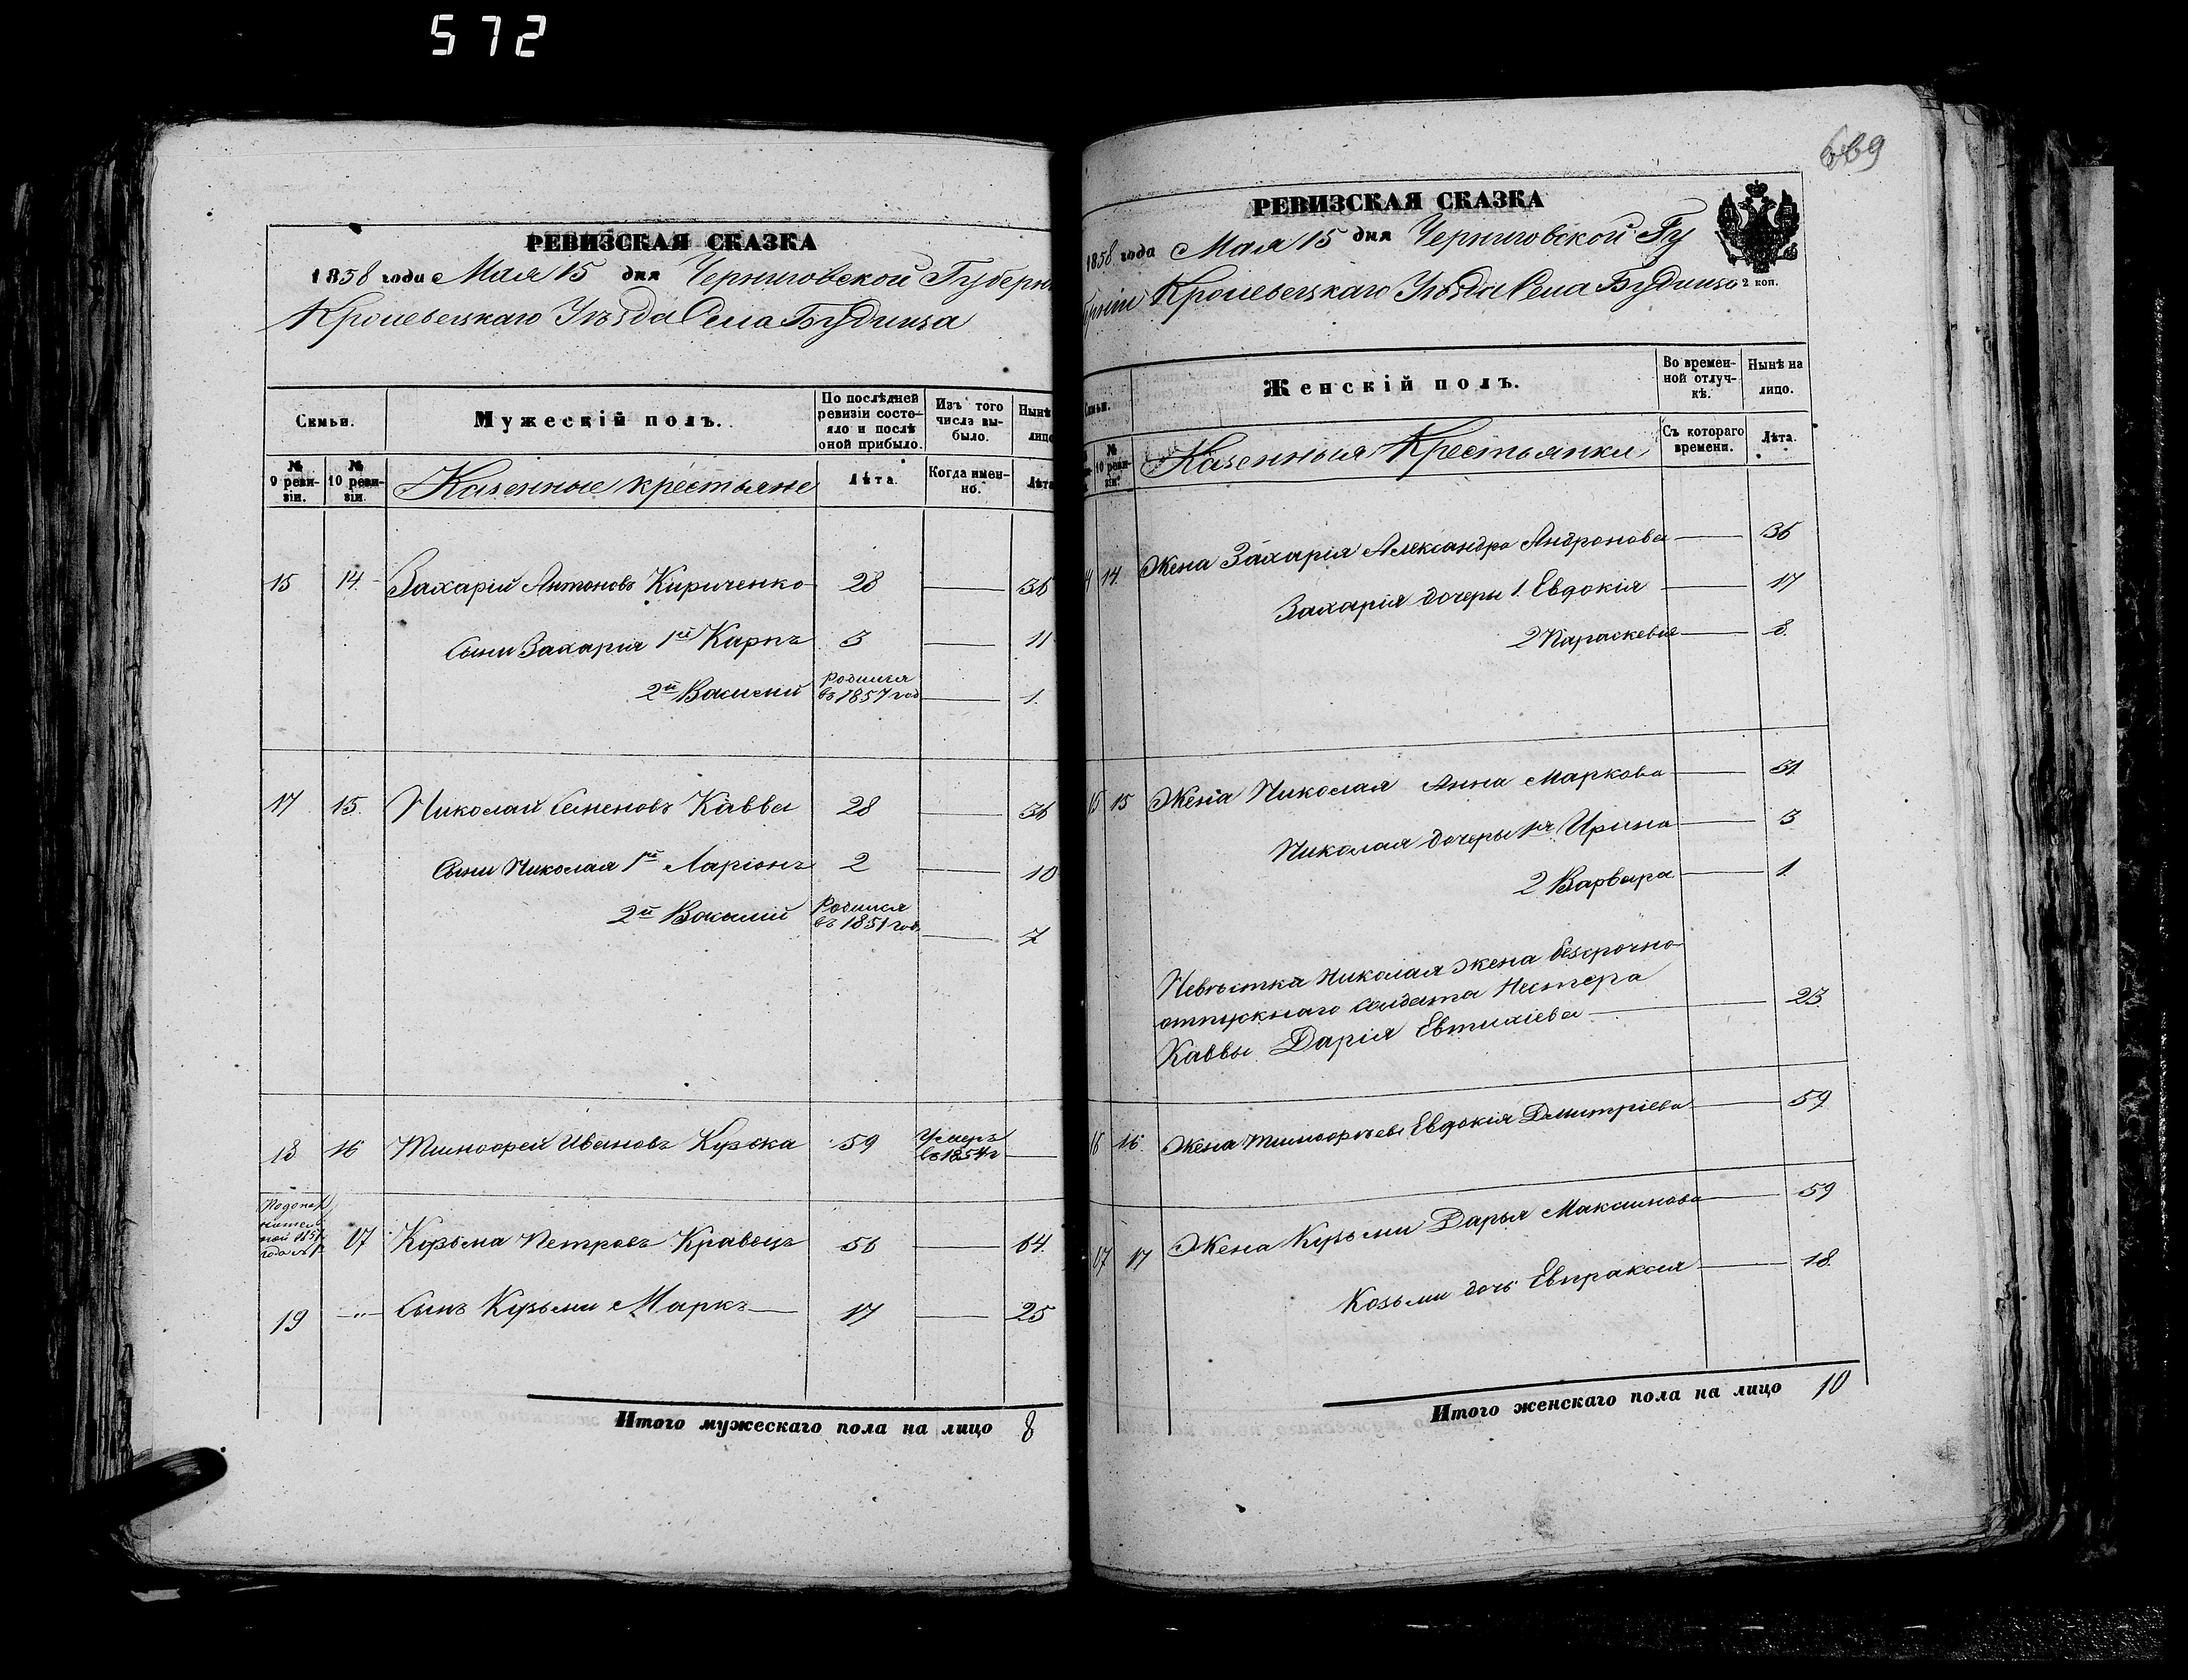 572
РЕВИЗСКАЯ СКАЗКА
1858 года Мая 15 дня Черниговской Губерн
Кролевецкаго Уѣзда Села Будища
Семьи.
Мужескій полъ.
По послѣдней ревизіи состояло и послѣ оной прибыло.
Изъ того числа выбыло.
Нынѣ лицо
№ 9 ревизіи.
№ 10 ревизіи.
Казенные крестьяне
Лѣта.
Когда именно.
Лѣта
15 14. Захарій Антоновъ Кириченко 28 — 36
Сыни Захарія 1й Карпъ 3 — 11
2й Василій Родился въ 1857 год — 1.
17 15. Николай Семеновъ Кавва 28 — 36
Сыни Николая 1й Ларіонъ 2 — 10
2й Василій Родился въ 1851 год. — 7
18 16 Тимофей Ивановъ Кузька 59 Умеръ въ 1854 г —
17 Кузьма Петровъ Кравецъ 56 — 64.
19 —"— Сынъ Кузьми Маркъ — 17 — 25
Итого мужескаго пола на лицо 8
669
РЕВИЗСКАЯ СКАЗКА
1858 года Мая 15 дня Черниговской Гу
берніи Кролевецкаго Уѣзда Села Будища
2 коп.
Женскій полъ.
Во временной отлучкѣ.
Нынѣ на лицо.
№ 10 ревизіи.
Казенныя Крестьянки
Съ котораго времени.
Лѣта.
14 14. Жена Захарія Александра Андронова — 36
Захарія дочери 1. Евдокія — 17
2 Параскевія — 8.
15 15 Жена Николая Анна Маркова — 31.
Николая дочери 1я Ирина — 3
2 Варвара — 1.
Невѣстка Николая жена безсрочно
отпускнаго Солдата Нестера
Каввы Дарія Евтихіева — 23.
16 16. Жена Тимофѣева Евдокія Дмитріева — 59
17 17 Жена Кузьми Дарья Максимова — 59
Козьми дочь Евпраксія — 18.
Итого женскаго пола на лицо 10